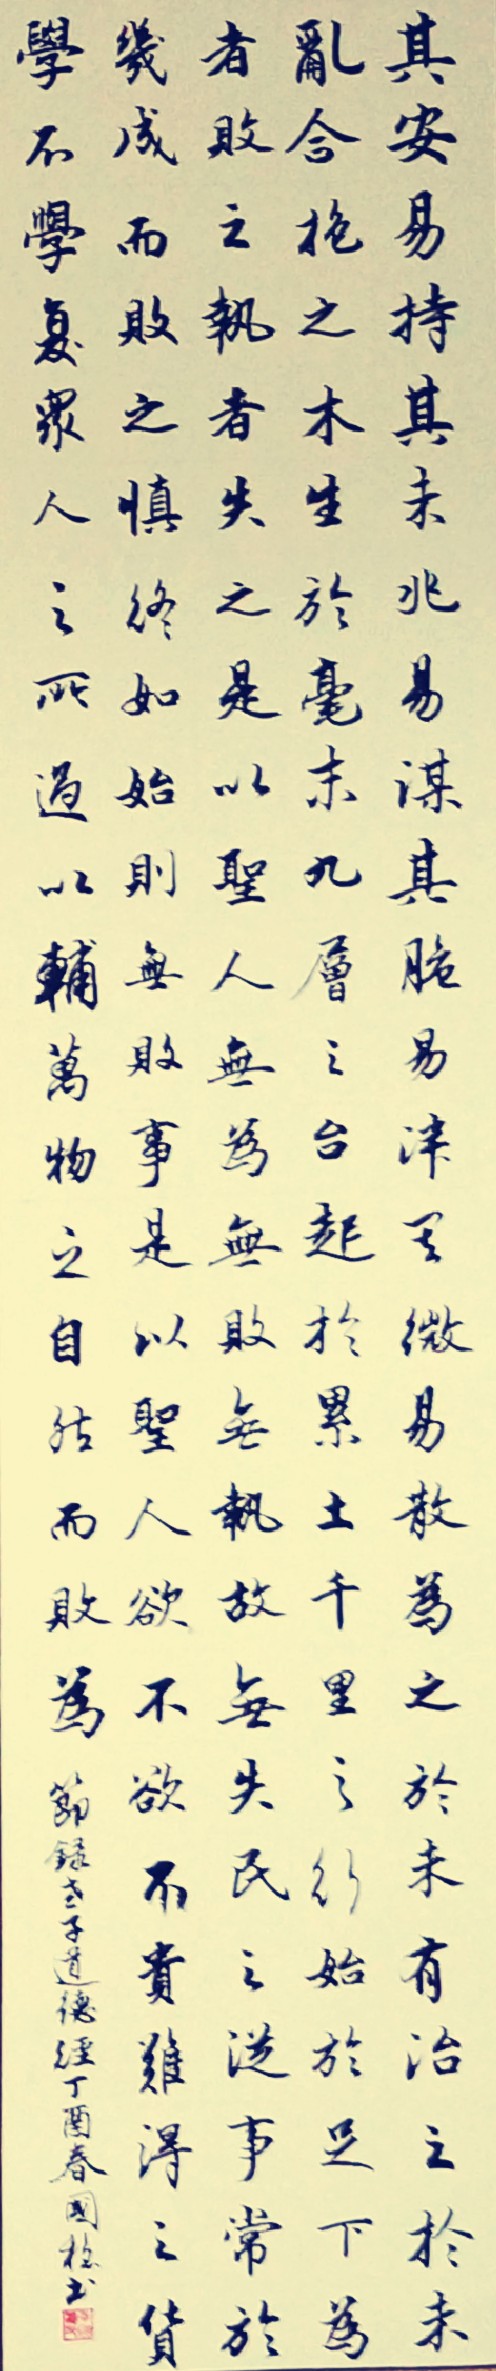 其安易持其未兆易謀其脆易泮其微易散為之於未有治之於未
亂合抱之木生於毫末九層之台起於累土千里之行始於足下為
者敗之執者失之是以聖人無為無敗無執故無失民之從事常於
幾成而敗之慎終如始則無敗事是以聖人欲不欲不貴難得之貨
學不學复眾人之所過以輔萬物之自然而敗為
節錄老子道德經丁酉春國